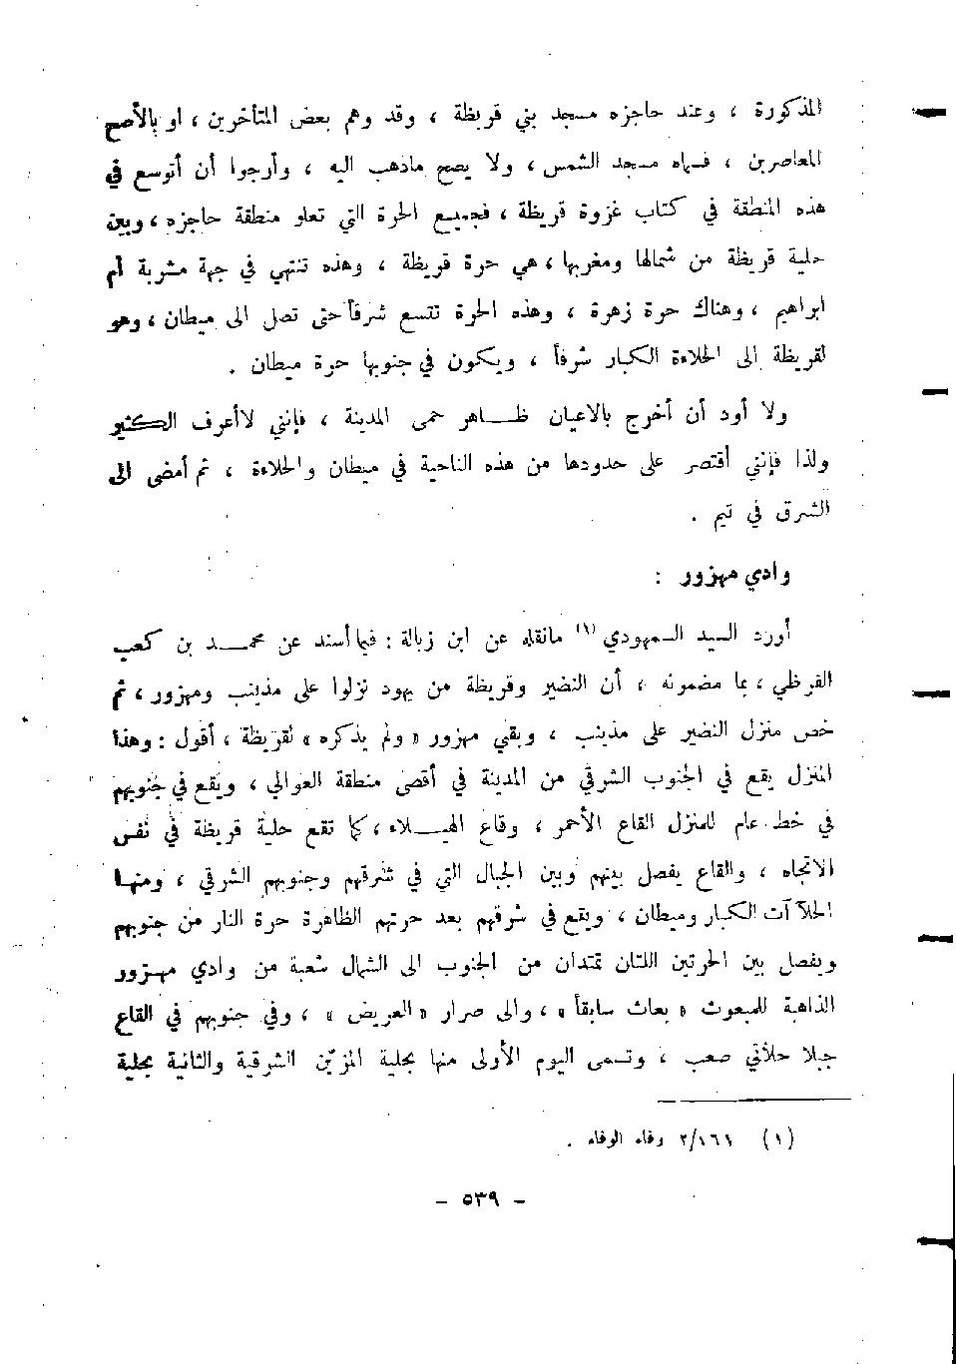 المذكورة ، وعند حاجزه مسجد بني قريظة ، وقد وهم بعض المتأخرين ، او بالأصح
المعاصرين ، فسماه مسجد الشمس ، ولا يصح ماذهب اليه ، وأرجوا أن أتوسع في
هذه المنطقة في كتاب غزوة قريظة ، فجميع الحرة التي تعلو منطقة حاجزه ، وبين
حلية قريظة من شمالها ومغربها ، هي حرة قريظة ، وهذه تنتهي في جهة مشربة أم
ابراهيم ، وهناك حرة زهرة ، وهذه الحرة تتسع شرقاً حتى تصل الى ميطان ، وهو
لقريظة الى الحلاءة الكبار شرقاً ، ويكون في جنوبها حرة ميطان .
ولا أود أن أخرج بالاعيان ظاهر حمى المدينة ، فإنني لاأعرف الكثير
ولذا فإنني أقتصر على حدودها من هذه الناحية في ميطان والحلاءة ، ثم أمضى الى
الشرق في تيم .
وادي مهزور :
أورد السيد السمهودي (١) مانقله عن ابن زبالة : فيما أسند عن محمد بن كعب
القرظي ، بما مضمونه ، أن النضير وقريظة من يهود نزلوا على مذينب ومهزور ، ثم
خص منزل النضير على مذينب ، وبقي مهزور « ولم يذكره » لقريظة ، أقول : وهذا
المنزل يقع في الجنوب الشرقي من المدينة في أقصى منطقة العوالي ، ويقع في جنوبهم
في خط عام للمنزل القاع الأحمر ، وقاع الهيلاء ، كما تقع حلية قريظة في نفس
الاتجاه ، والقاع يفصل بينهم وبين الجبال التي في شرقهم وجنوبهم الشرقي ، ومنها
الحلاآت الكبار وميطان ، ويقع في شرقهم بعد حرتهم الظاهرة حرة النار من جنوبهم
ويفصل بين الحرتين اللتان تمتدان من الجنوب الى الشمال شعبة من وادي مهزور
الذاهبة للمبعوث « بعاث سابقاً » ، والى صرار « العريض » ، وفي جنوبهم في القاع
جبلا حلائي صعب ، وتسمى اليوم الأولى منها بحلية المزيّن الشرقية والثانية بحلية
(١) ٢/١٦١ وفاء الوفاء .
– ٥٣٩ –